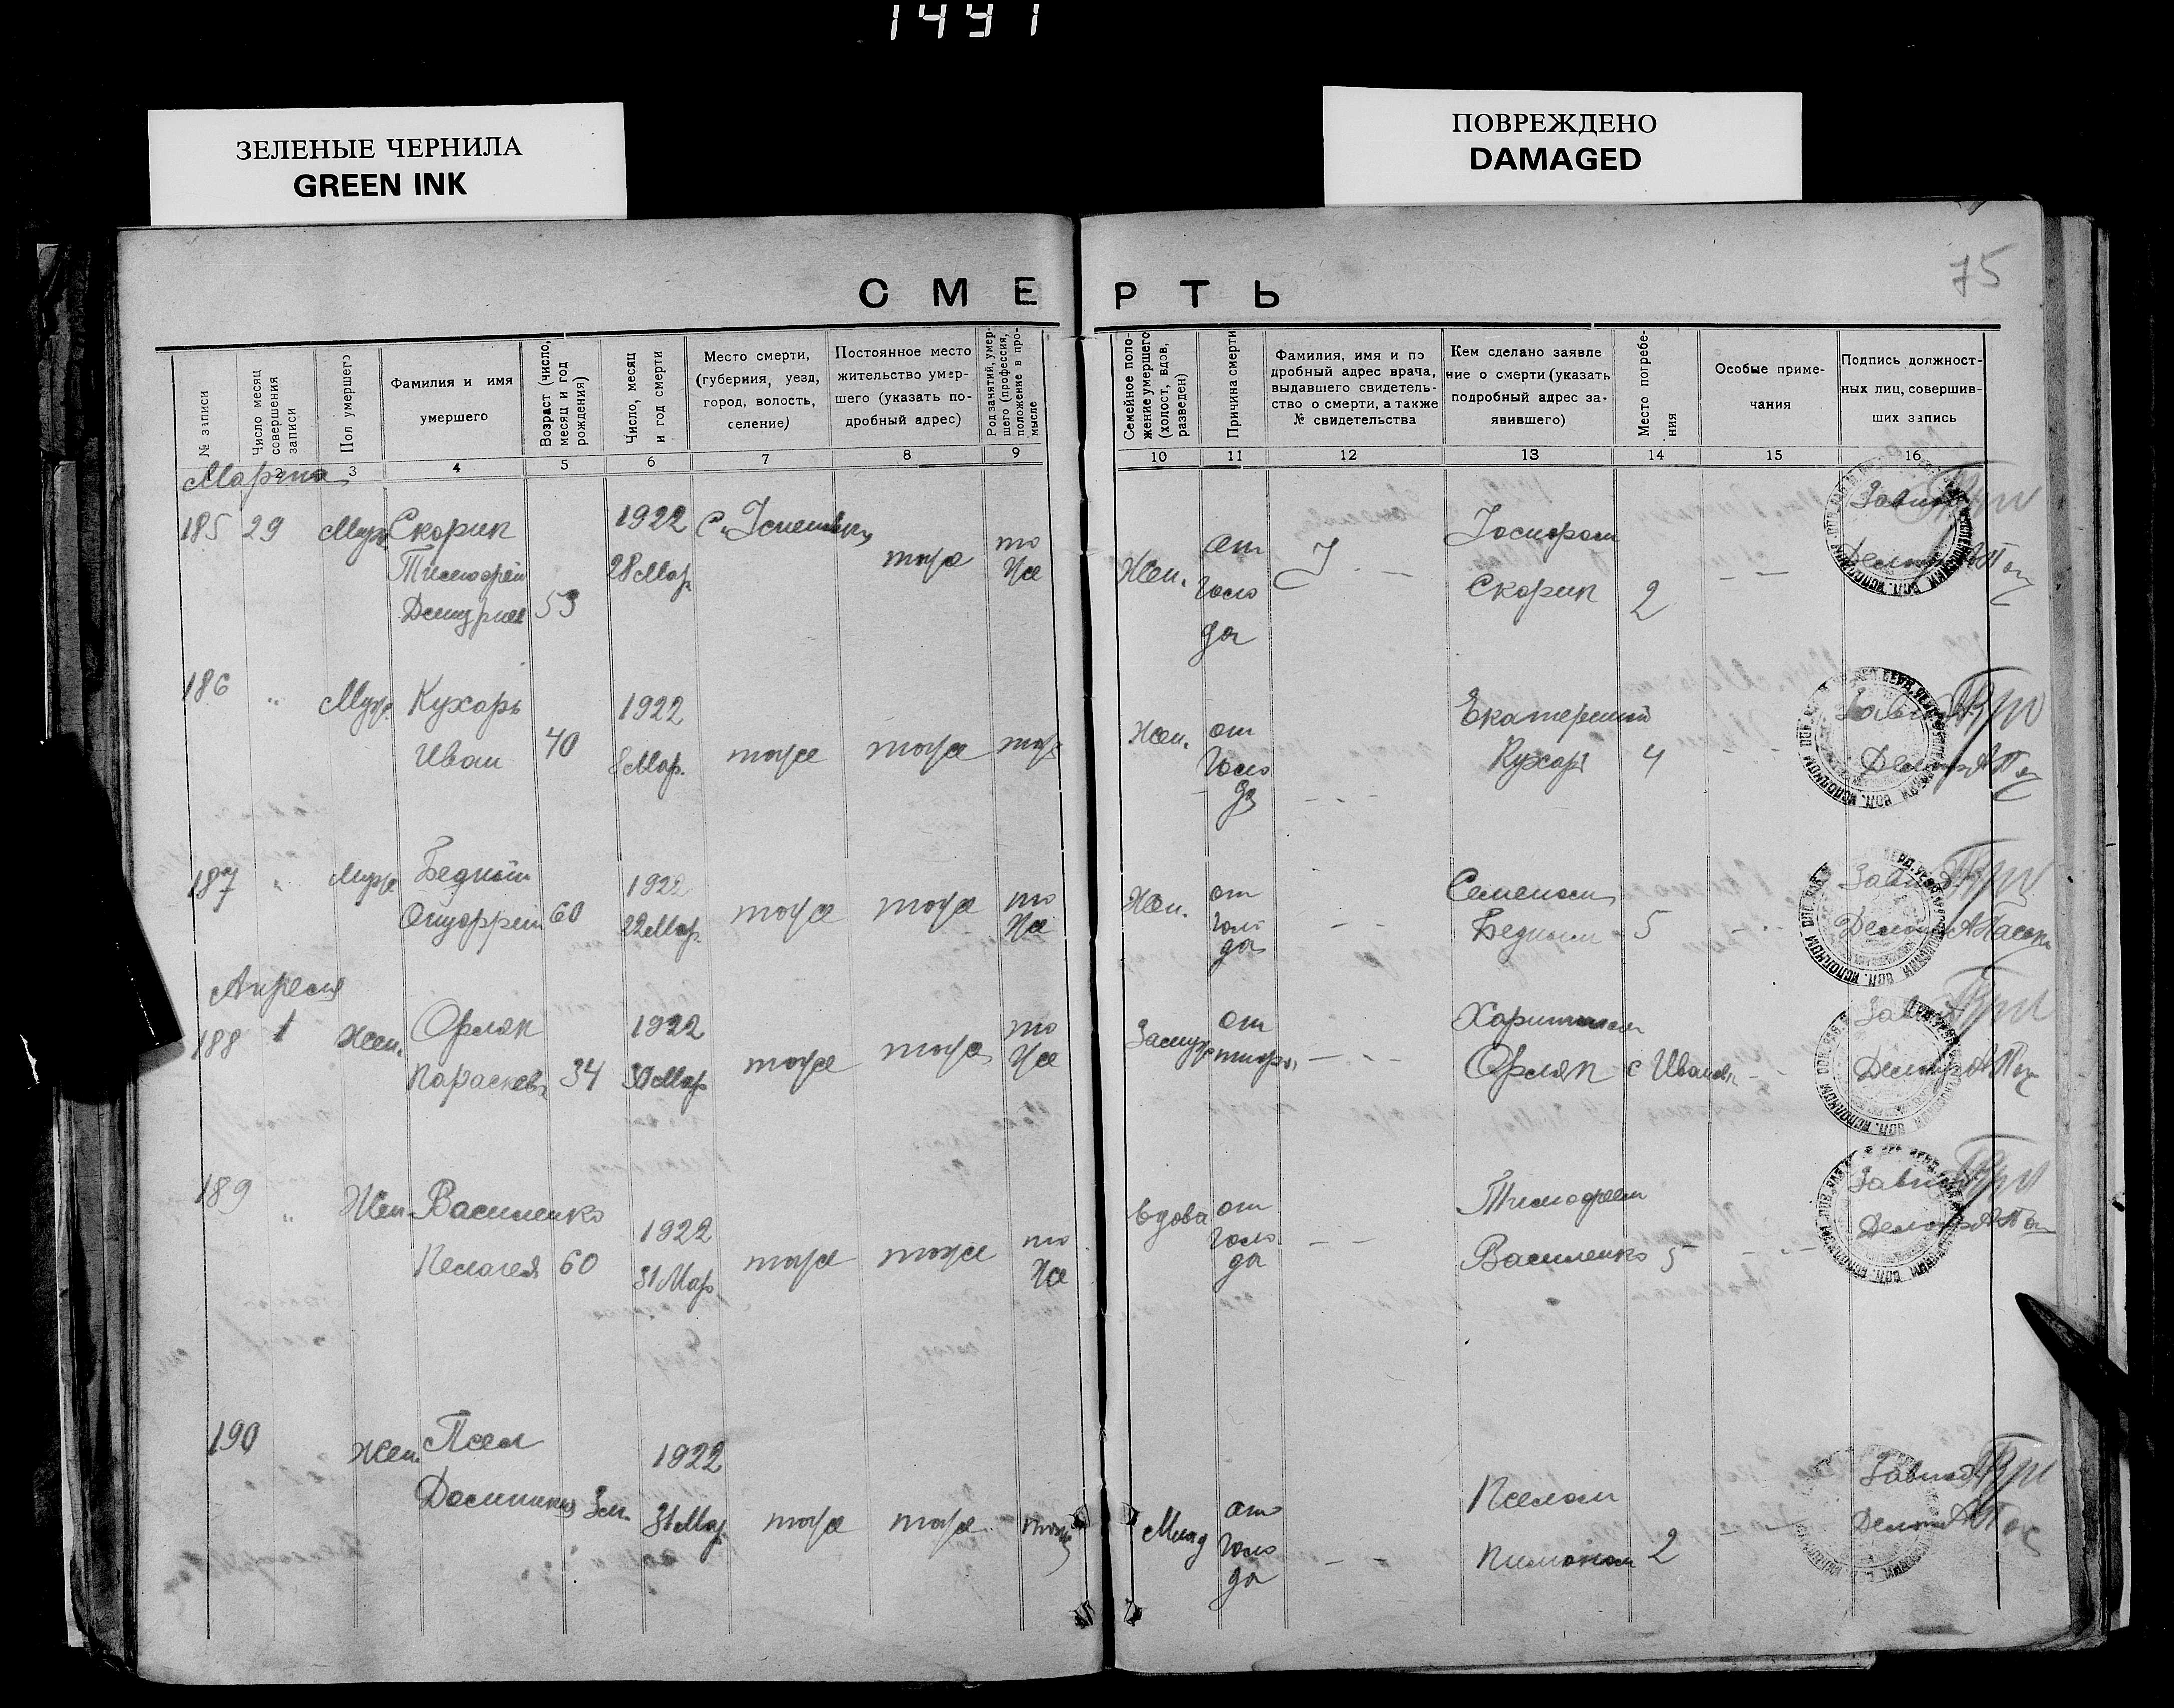 1441
ЗЕЛЕНЫЕ ЧЕРНИЛА
GREEN INK
ПОВРЕЖДЕНО
DAMAGED
75
СМЕРТЬ
№ записи
Число месяц совершения записи
Пол умершего
Фамилия и имя умершего
Возраст (число, месяц и год рождения)
Число, месяц и год смерти
Место смерти, (губерния, уезд, город, волость, селение)
Постоянное место жительство умершего (указать подробный адрес)
Род занятий, умершего (профессия, положение в промысле
Семейное положение умершего (холост, вдов, разведен)
Причина смерти
Фамилия, имя и по дробный адрес врача, выдавшего свидетельство о смерти, а также № свидетельства
Кем сделано заявление о смерти (указать подробный адрес заявившего)
Место погребения
Особые примечания
Подпись должностных лиц, совершивших запись
2 3 4 5 6 7 8 9 10 11 12 13 14 15 16
Марта
185 29 Муж Скорик 1922 С.
Тимофей 28 Мар. тоже то же Жен. от голода
53 Скорик 2
186 " Муж. Кухарь 1922
Иван 40 8 Мар. тоже тоже тож Жен. от голода Кухарь 4
187 " Муж Бедный 1922
60 22 Мар. тоже тоже то же Жен. от голода Семеном Бедным 5
Апреля
188 1 Жен. Орляк 1922
Параскева 34 30 Мар тоже тоже то же Замуж от Харитоном Орляк с
189 " Жен. Василенко 1922
Пелагея 60 31 Мар тоже тоже то же вдова от голода Тимофеем Василенко 5
190 Жен. Псел 1922
3 м. 31 Мар тоже тоже Млад от голода Пселом 2